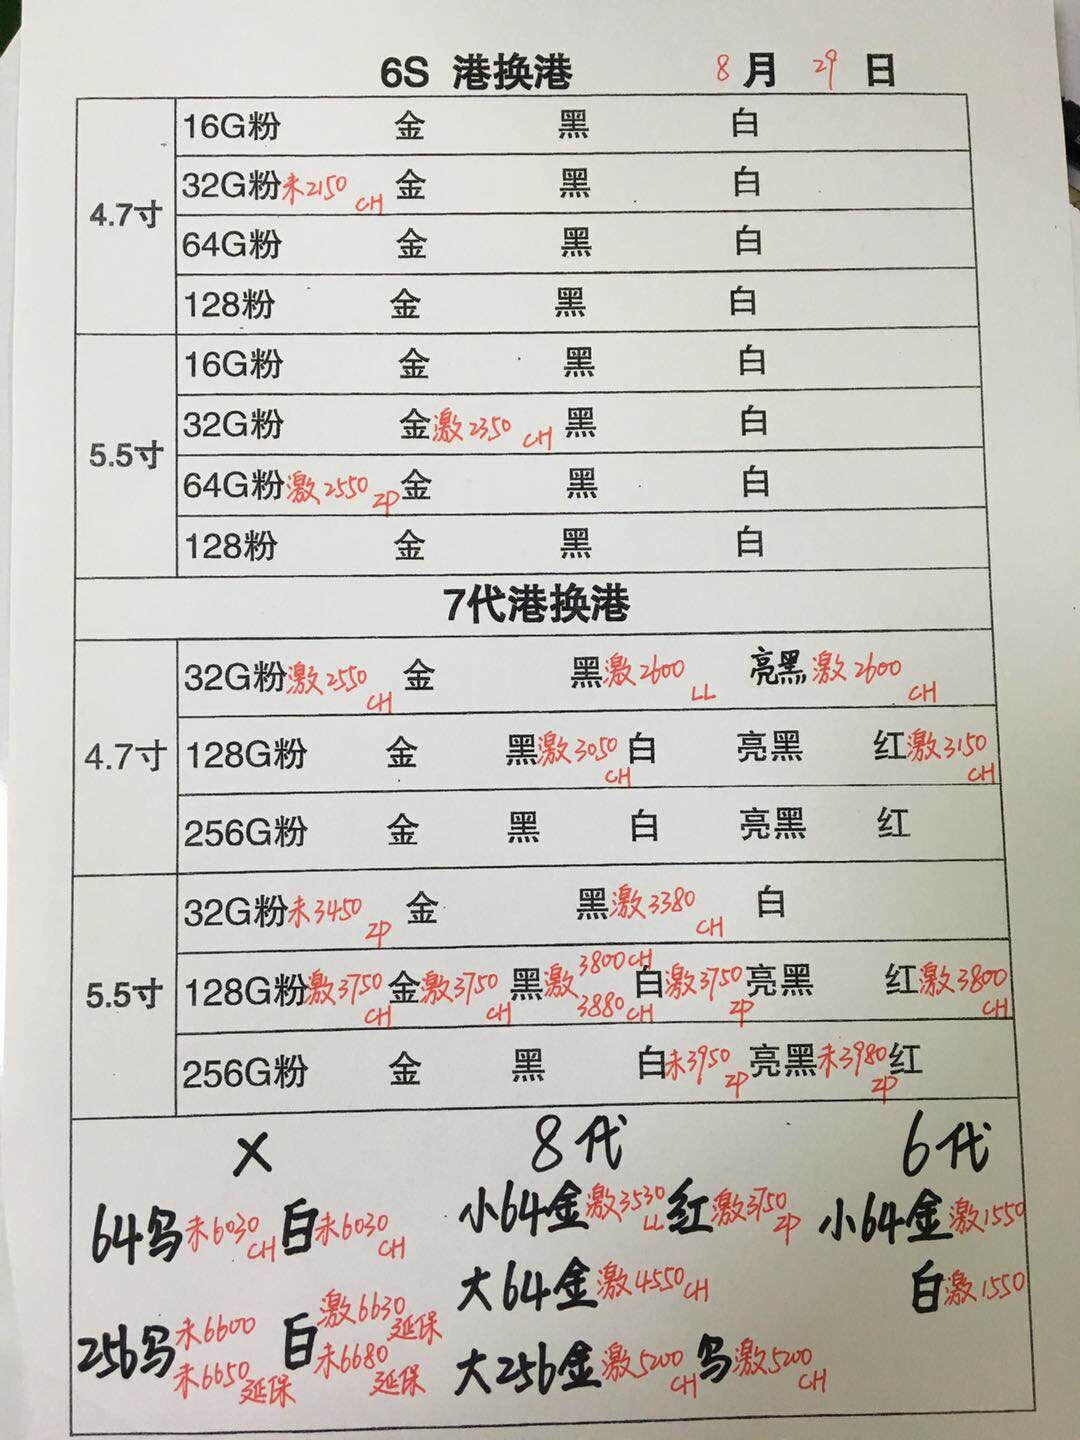 6S 港换港 8月29日
4.7寸
16G粉 金 黑 白
32G粉 未2150 CH 金 黑 白
64G粉 金 黑 白
128粉 金 黑 白
5.5寸
16G粉 金 黑 白
32G粉 金 激2350 CH 黑 白
64G粉 激2550 ZP 金 黑 白
128粉 金 黑 白
7代港换港
4.7寸
32G粉 激2550 CH 金 黑 激2600 LL 亮黑 激2600 CH
128G粉 金 黑 激3050 CH 白 亮黑 红 激3150 CH
256G粉 金 黑 白 亮黑 红
5.5寸
32G粉 未3450 ZP 金 黑 激3380 CH 白
128G粉 激3750 CH 金 激3750 CH 黑 激 3800 CH 3880 CH 白 激3750 ZP 亮黑 红 激3800 CH
256G粉 金 黑 白 未3950 ZP 亮黑 未3980 ZP 红
X 8代 6代
64乌 未6030 CH 白 未6030 CH
256乌 未6600
未6650 延保
白 激6630 延保
未6680 延保
小64金 激3530 LL 红 激3750 ZP
大64金 激4550 CH
大256金 激5200 CH 乌 激5200 CH
小64金 激1550
白 激1550